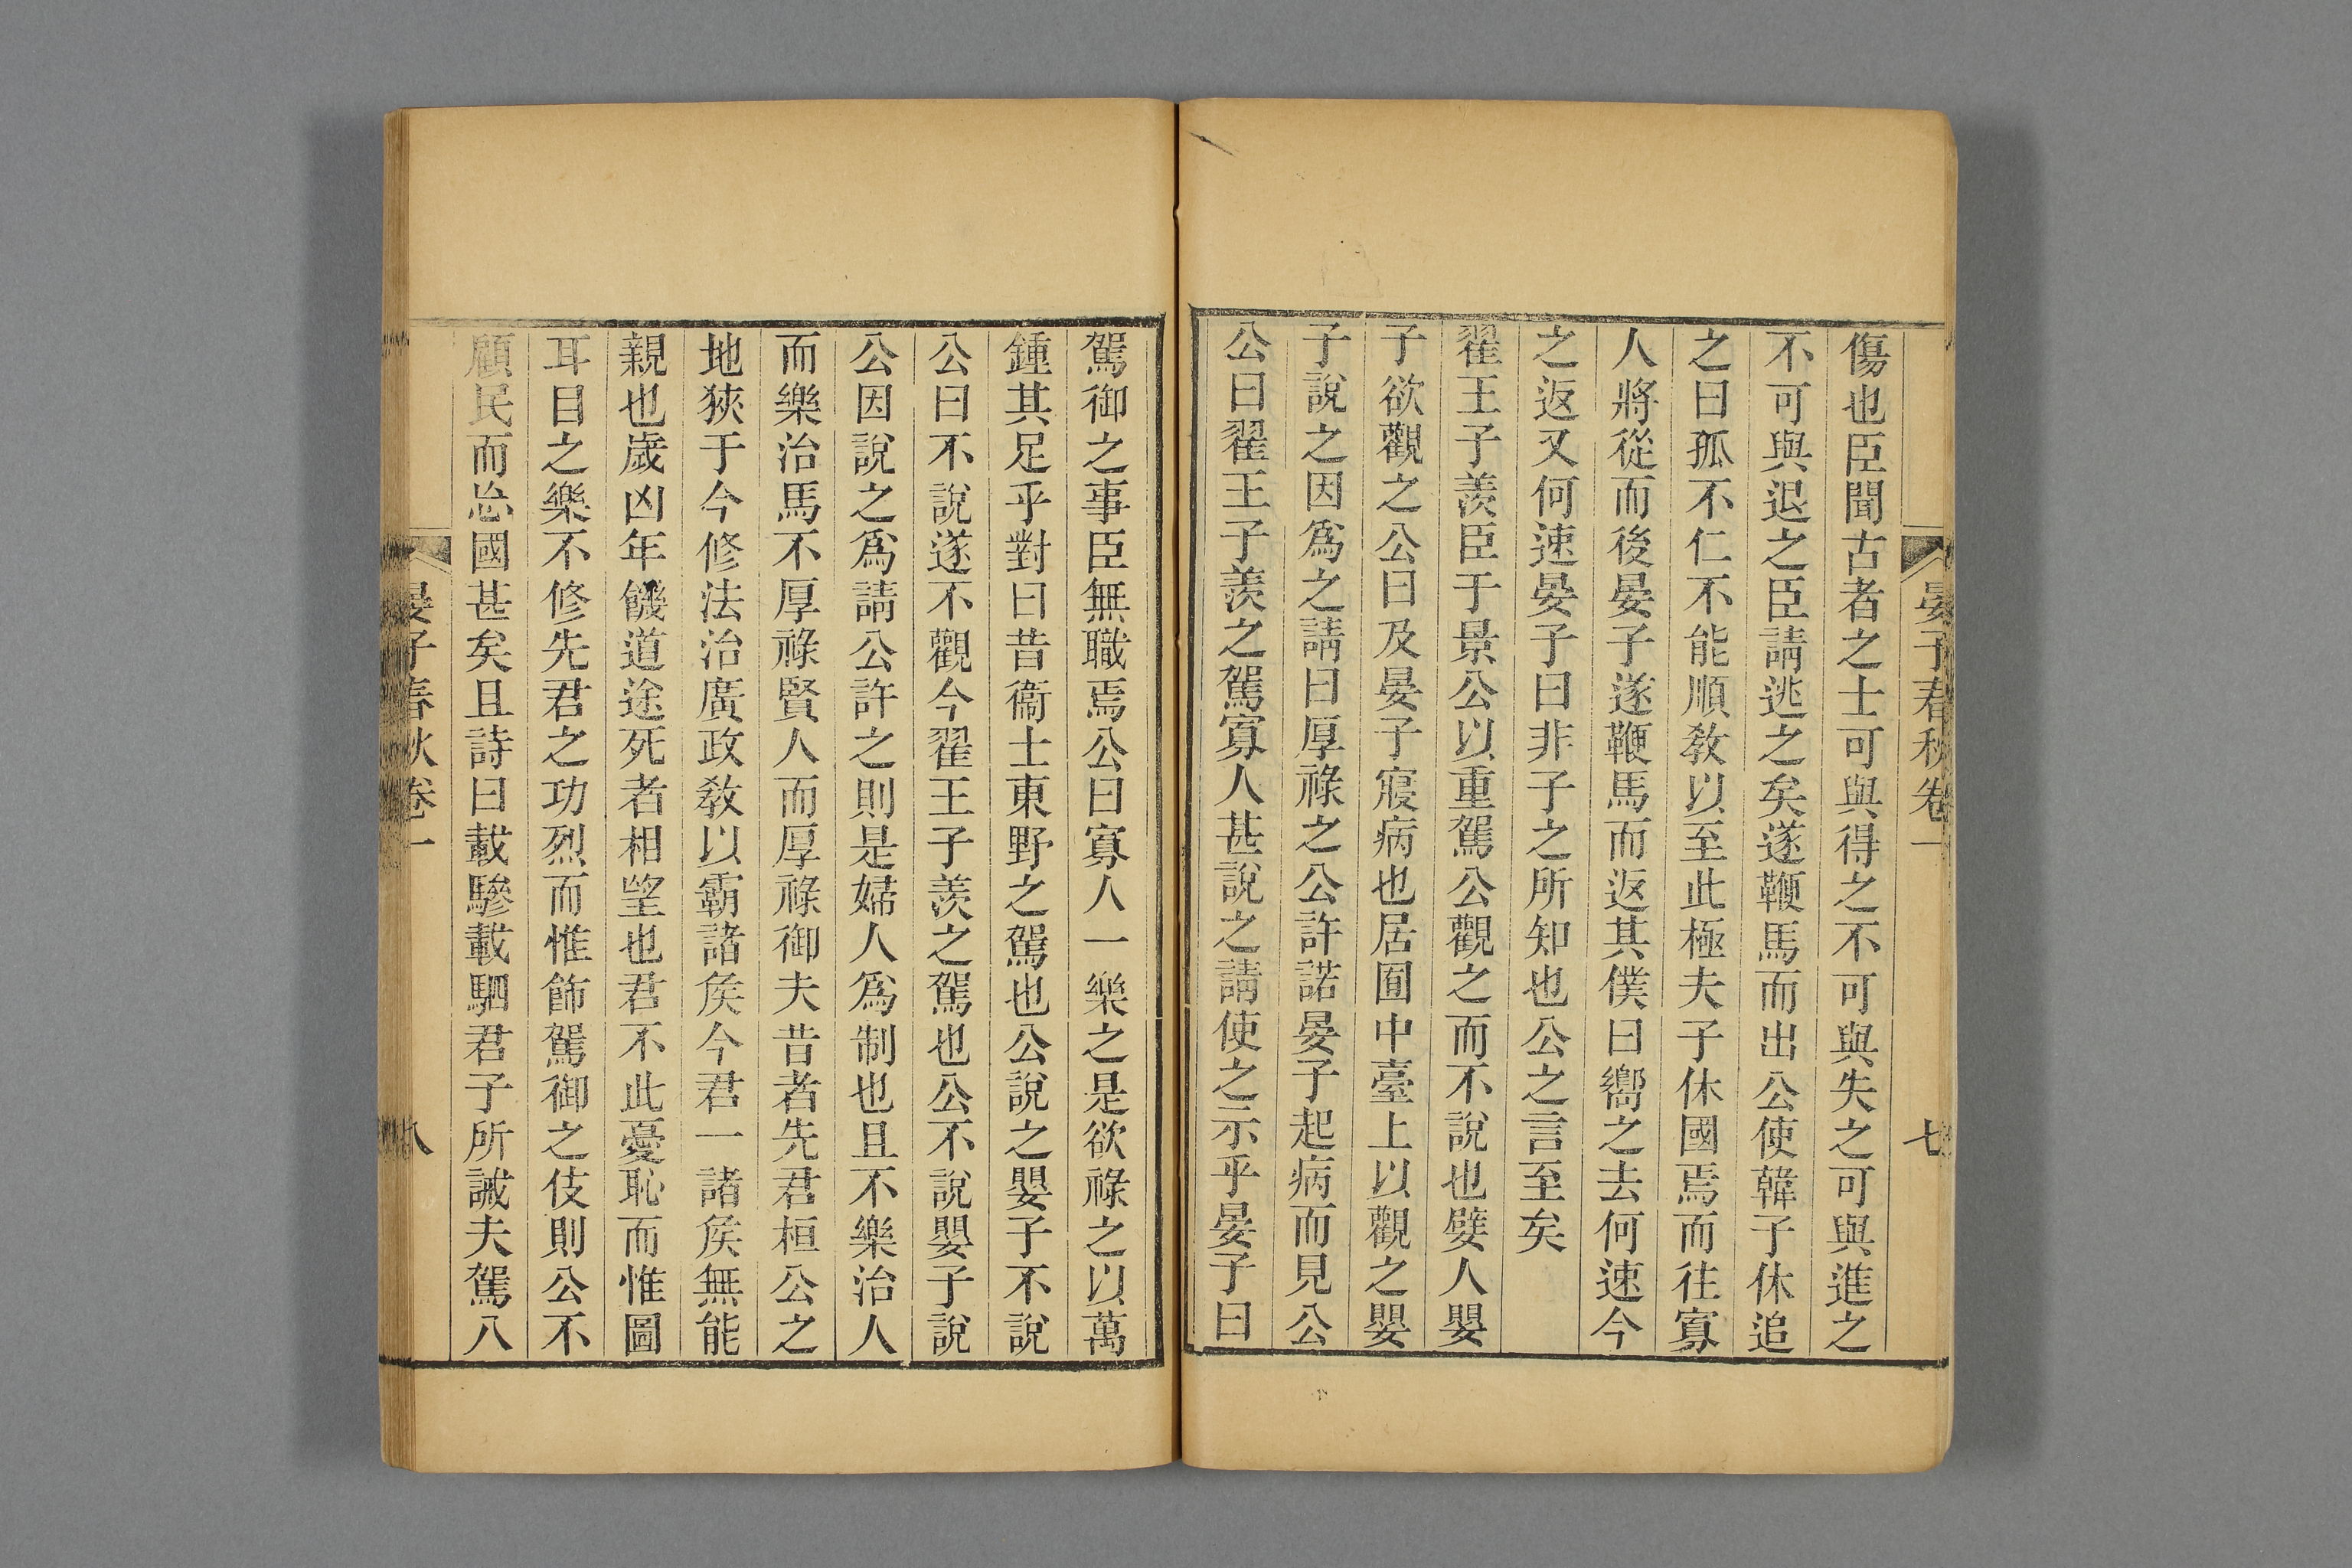 晏子春秋卷一
七
傷也臣聞古者之士可與得之不可與失之可與進之
不可與退之臣請逃之矣遂鞭馬而出公使韓子休追
之曰孤不仁不能順敎以至此極夫子休國焉而往寡
人將從而後晏子遂鞭馬而返其僕曰嚮之去何速今
之返又何速晏子曰非子之所知也公之言至矣
翟王子羨臣于景公以重駕公觀之而不說也嬖人嬰
子欲觀之公曰及晏子寢病也居囿中臺上以觀之嬰
子說之因爲之請曰厚祿之公許諾晏子起病而見公
公曰翟王子羨之駕寡人甚說之請使之示乎晏子曰
駕御之事臣無職焉公曰寡人一樂之是欲祿之以萬
鍾其足乎對曰昔衞士東野之駕也公說之嬰子不說
公曰不說遂不觀今翟王子羨之駕也公不說嬰子說
公因說之爲請公許之則是婦人爲制也且不樂治人
而樂治馬不厚祿賢人而厚祿御夫昔者先君桓公之
地狹于今修法治廣政敎以霸諸矦今君一諸矦無能
親也歲凶年饑道途死者相望也君不此憂恥而惟圖
耳目之樂不修先君之功烈而惟飾駕御之伎則公不
顧民而忩國甚矣且詩曰載驂載駟君子所誡夫駕八
晏子春秋卷一
八